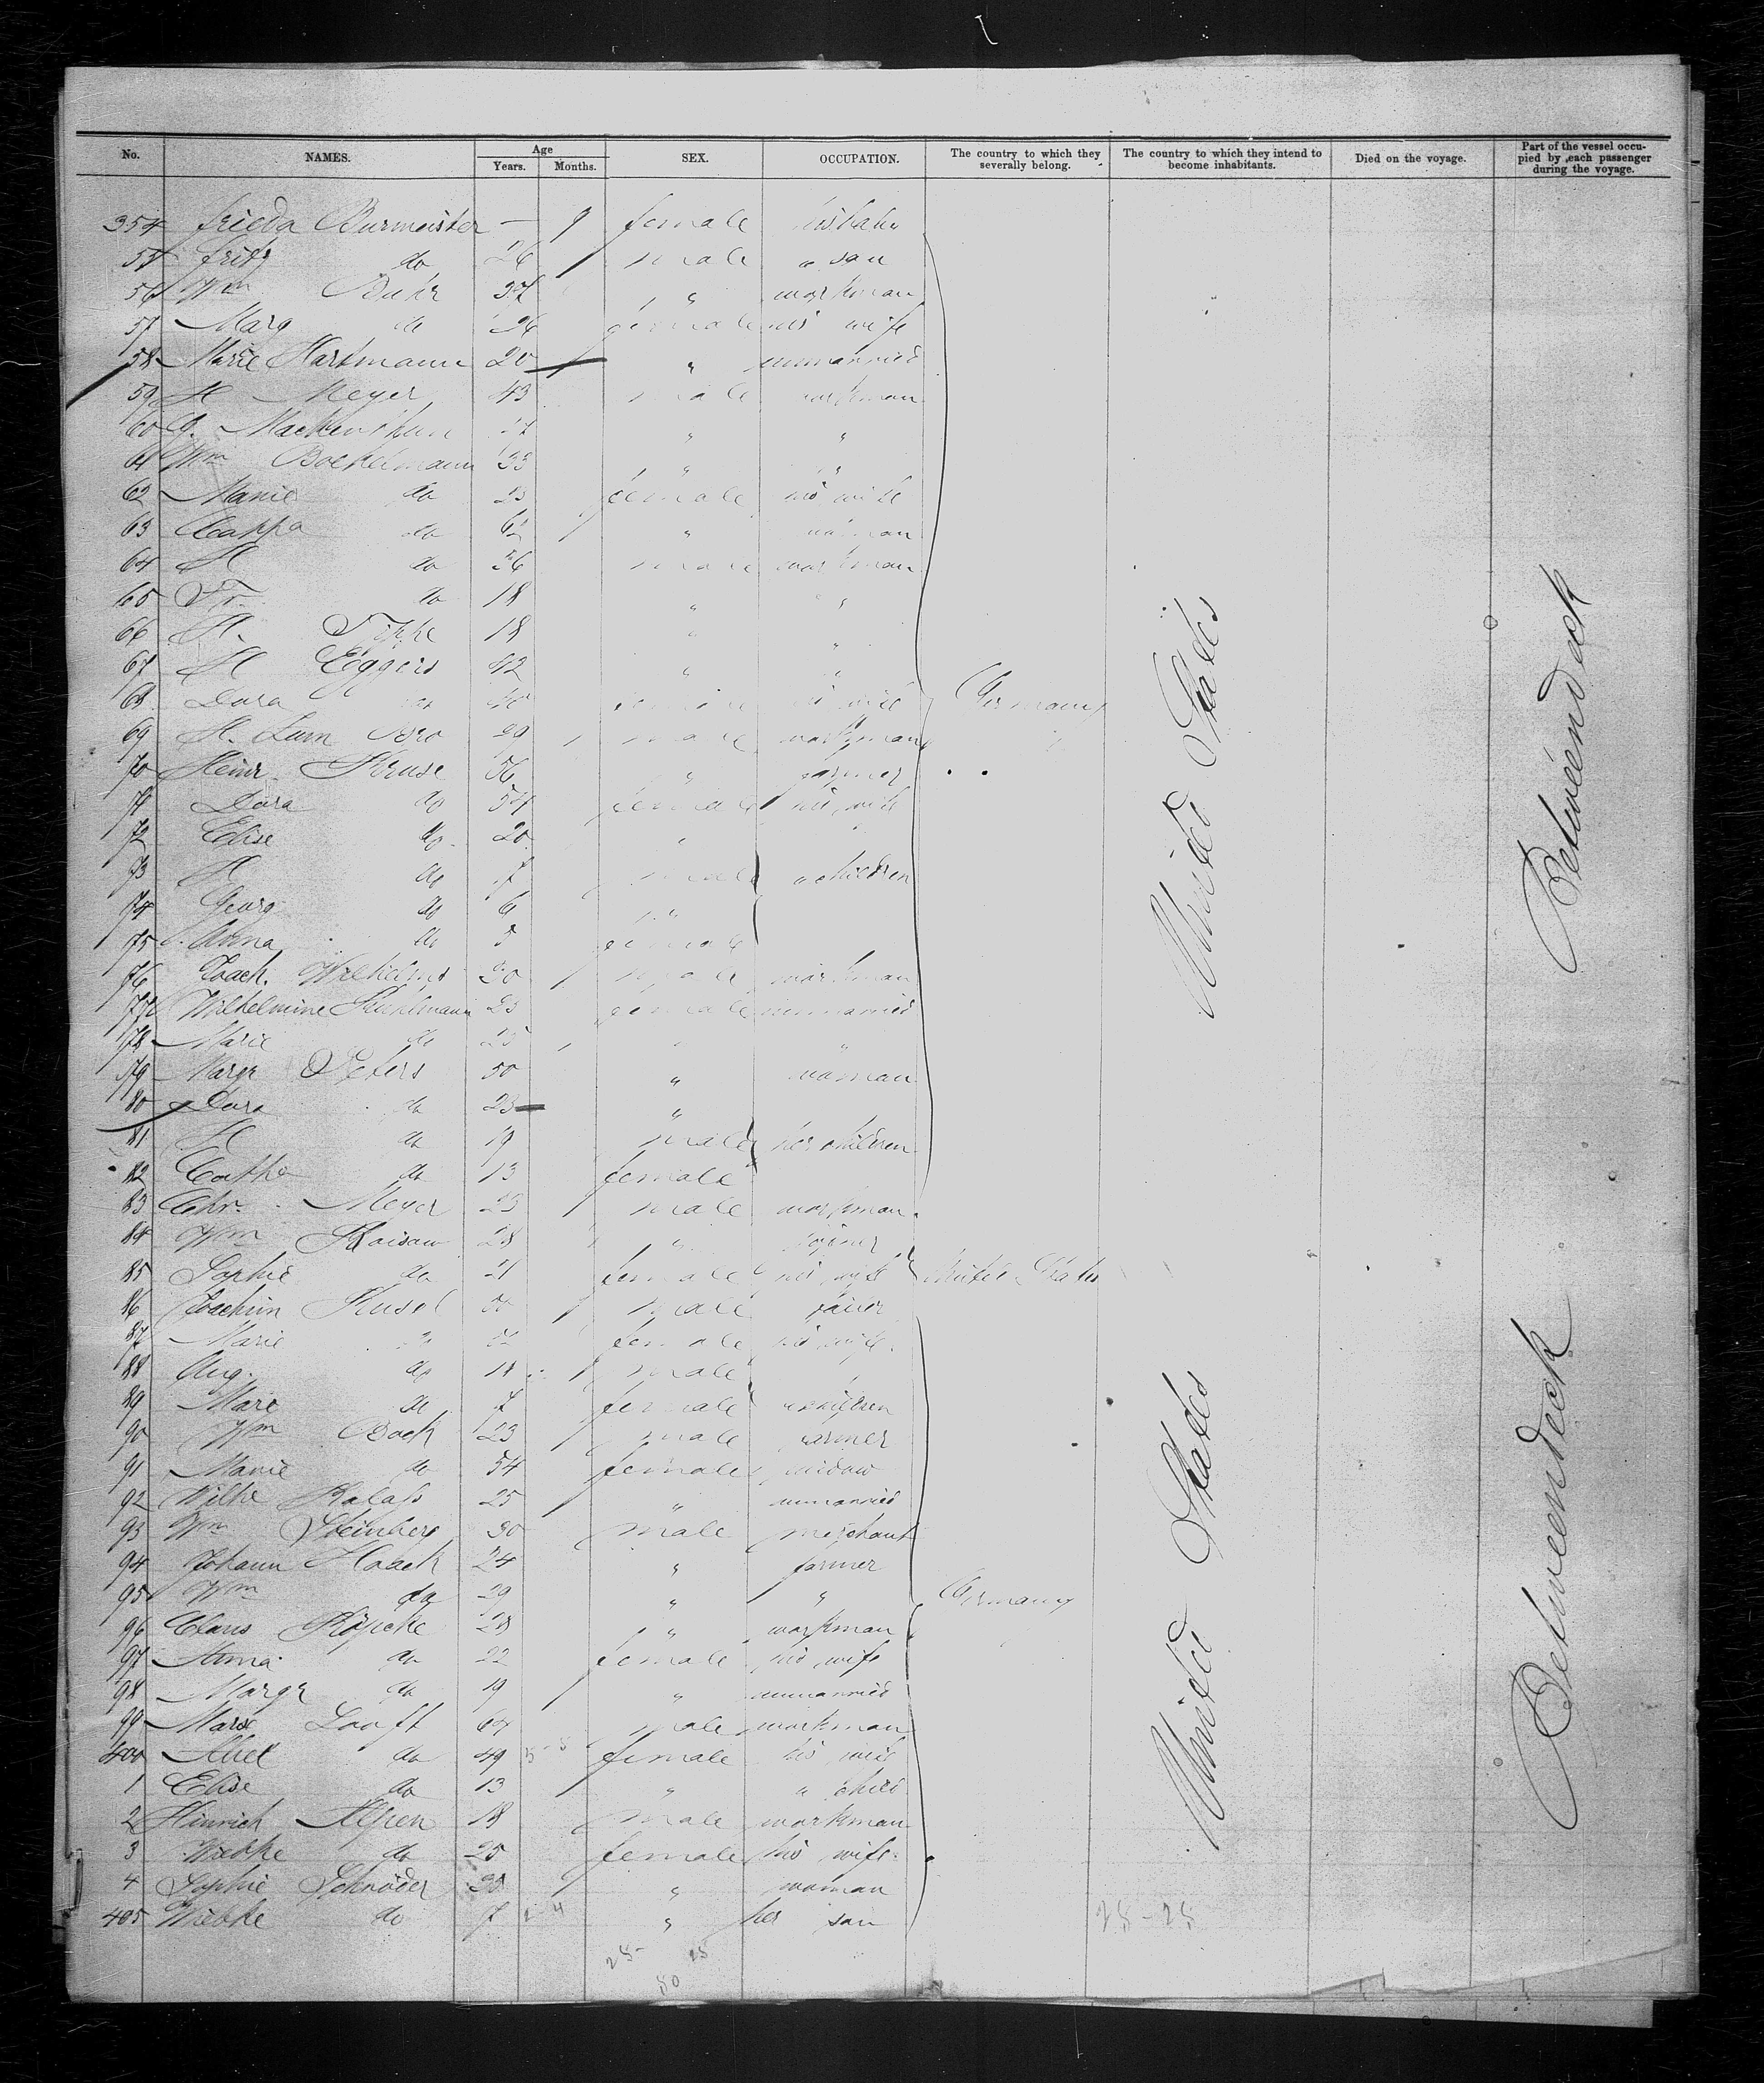 No. NAMES. Age Years. Months. SEX. OCCUPATION. The country to which they severally belong. The country to which they intend to become inhabitants. Died on the voyage. Part of the vessel occupied by each passenger during the voyage.
354 Frieda Burmeister — 9 female
55 Fritz do 26 male " son
56 Wm Buhr 37 " workman
57 Marg do 36 female his wife
58 Marie Hartmann 20 " unmarried
59 H Meyer 43 male workman
60 G. " "
61 Wm Boekelmann 33 " "
62 Marie do 23 female his wife
63 do 62 " woman
64 H do 36 male workman
65 Fr. do 18 " "
66 H. Tippe 18 " "
67 H Eggers 42 " "
68 Dora do female his wife Germany United States Betweendeck
69 H. 29 male workman
70 Heinr. Kruse 56 " farmer
71 Dora do 54 female his wife
72 Elise do 20 "
73 H do 7 male " children
74 Georg do 6 "
75 Anna do 5 female
76 Joach. Wilhelms 20 male workman
77 Wilhelmine Kuhlmann 23 female unmarried
78 Marie do 25 " "
79 Margr Peters 50 " woman
80 Dora do 23 "
81 H do 19 male her children
82 Cathe do 13 female
83 Chr. Meyer 23 male workman
84 Wm Kaisaw 28 "
85 Sophie do 21 female his wife United States
86 Joachim Kusel male
87 Marie female his wife
88 Aug. do 11 male
89 Marie do 7 female " children
90 Wm Bock 23 male farmer
91 Marie do 54 female widow
92 Wilhe Kalass 25 " unmarried
93 Wm Steinberg 30 male merchant
94 Johann Haack 24 " farmer
95 Wm do 29 " " Germany United States Betweendeck
96 Claus Röpcke 28 " workman
97 Anna do 22 female his wife
98 Margr do 19 " unmarried
99 Marx Looft 64 male workman
400 Abel do 49 female his wife
1 Elise do 13 " " child
2 Hinrich Alpen 18 male workman
3 Wiebke do 25 female his wife
4 Sophie Schröder " woman
405 Wiebke do 7 " her son
25 - 25
25 - 25
50